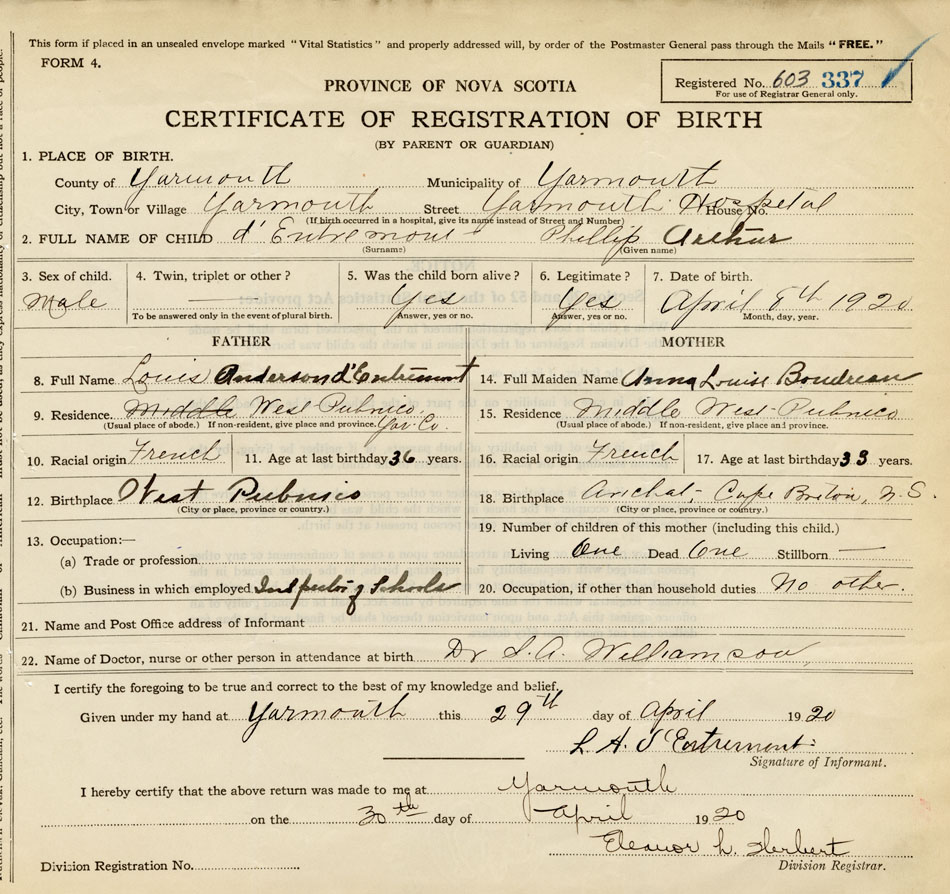 This form if placed in an unsealed envelope marked "Vital Statistics" and properly addressed will, by order of the Postmaster General pass through the Mails "FREE."
FORM 4.
Registered No. 603 337
For use of Registrar General only.
PROVINCE OF NOVA SCOTIA
CERTIFICATE OF REGISTRATION OF BIRTH
(BY PARENT OR GUARDIAN)
1. PLACE OF BIRTH.
County of Yarmouth Municipality of Yarmouth
City, Town or Village Yarmouth Street Yarmouth Hospital House No.
(If birth occurred in a hospital, give its name instead of Street and Number)
2. FULL NAME OF CHILD d'Entremont Phillip Arthur
(Surname) (Given name)
3. Sex of child. 4. Twin, triplet or other? 5. Was the child born alive? 6. Legitimate? 7. Date of birth.
Male Yes Yes April 8th 1920
To be answered only in the event of plural birth. Answer, yes or no. Answer, yes or no. Month, day, year.
FATHER MOTHER
8. Full Name Louis Anderson d'Entremont 14. Full Maiden Name Anna Louise Boudreau
9. Residence. Middle West Pubnico Yar. Co. 15. Residence Middle West Pubnico
(Usual place of abode.) If non-resident, give place and province. (Usual place of abode.) If non-resident, give place and province.
10. Racial origin French 11. Age at last birthday 36 years. 16. Racial origin French 17. Age at last birthday 33 years.
12. Birthplace West Pubnico 18. Birthplace Arichat, Cape Breton, N.S.
(City or place, province or country.) (City or place, province or country.)
13. Occupation:— 19. Number of children of this mother (including this child.)
(a) Trade or profession Living One Dead One Stillborn —
(b) Business in which employed Inspector of Schools 20. Occupation, if other than household duties No other.
21. Name and Post Office address of Informant
22. Name of Doctor, nurse or other person in attendance at birth Dr Williamson
I certify the foregoing to be true and correct to the best of my knowledge and belief.
Given under my hand at Yarmouth this 29th day of April 1920
L. A. d'Entremont
Signature of Informant.
I hereby certify that the above return was made to me at Yarmouth
on the 30th day of April 1920
Eleanor h. Herbert
Division Registration No. Division Registrar.